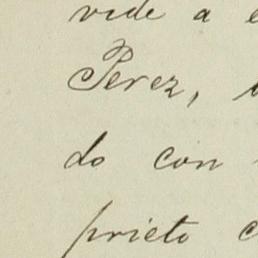 vide a
Perez,
do con
prieto